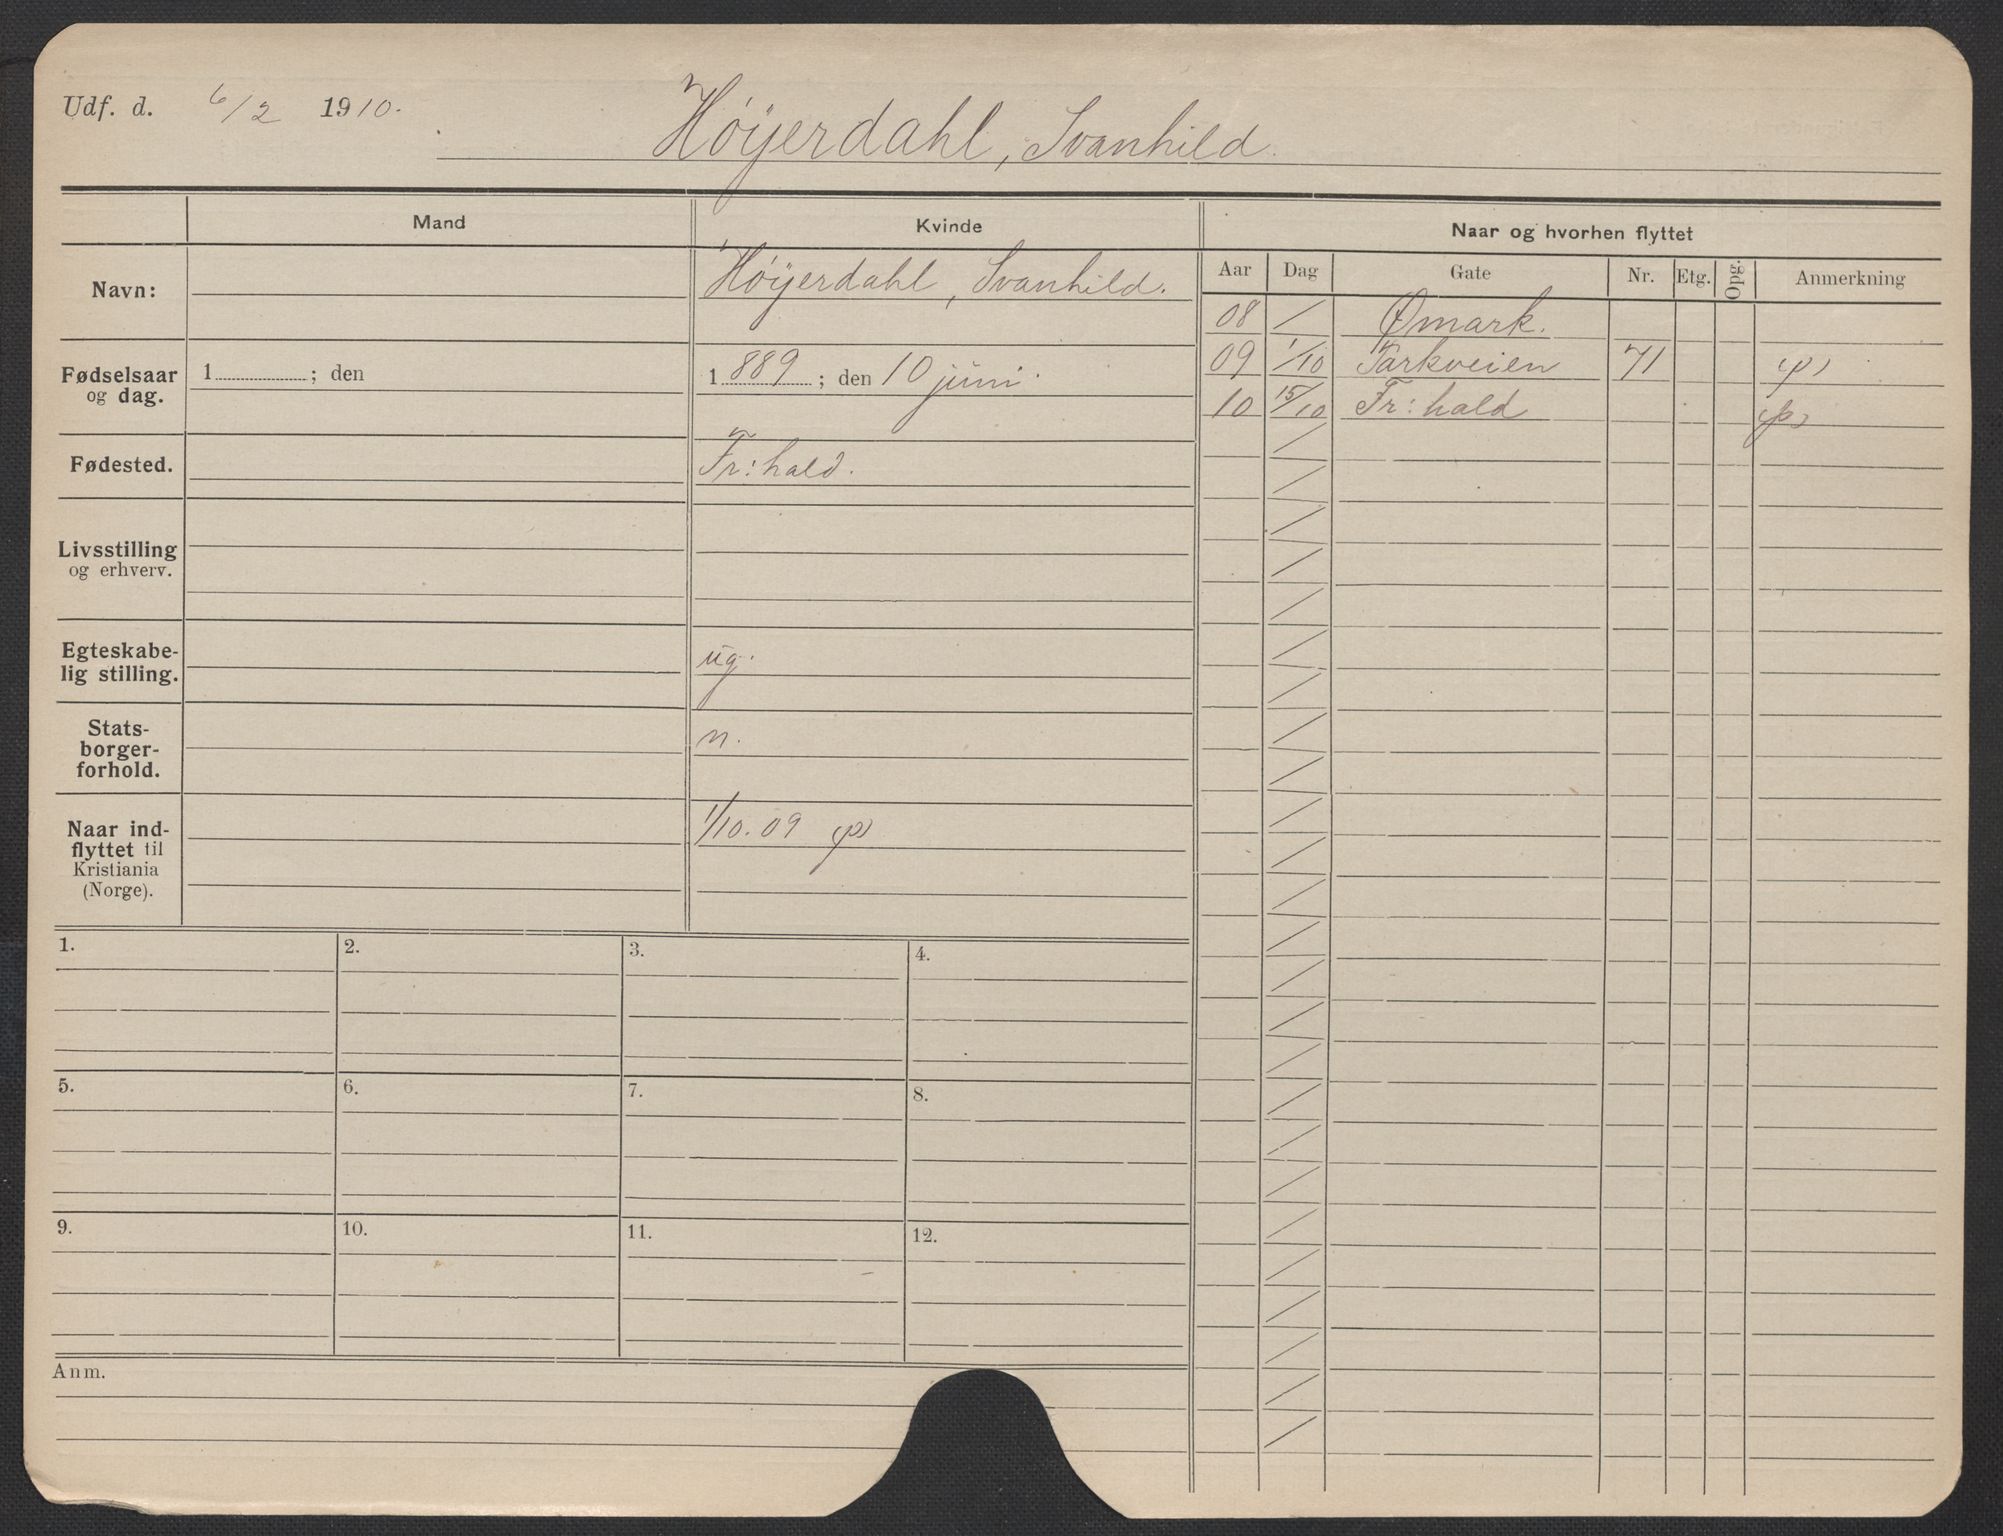 Udf. d. 6/2 1910.
Høÿerdahl, Svanhild.
Mand Kvinde Naar og hvorhen flyttet
Aar Dag Gate Nr. Etg. Opg. Anmerkning
Navn: Høÿerdahl, Svanhild.
08 / Ømark.
09 1/10 Parkveien 71 (p)
10 15/10 Fr:hald (p)
Fødselsaar
og dag.
1 ; den
1889 ; den 10 juni.
Fødested. Fr:hald.
Livsstilling
og erhverv.
Egteskabe-
lig stilling.
ug.
Stats-
borger-
forhold.
n.
Naar ind-
flyttet til
Kristiania
(Norge).
1/10. 09 (p)
1. 2. 3. 4.
5. 6. 7. 8.
9. 10. 11. 12.
Anm.